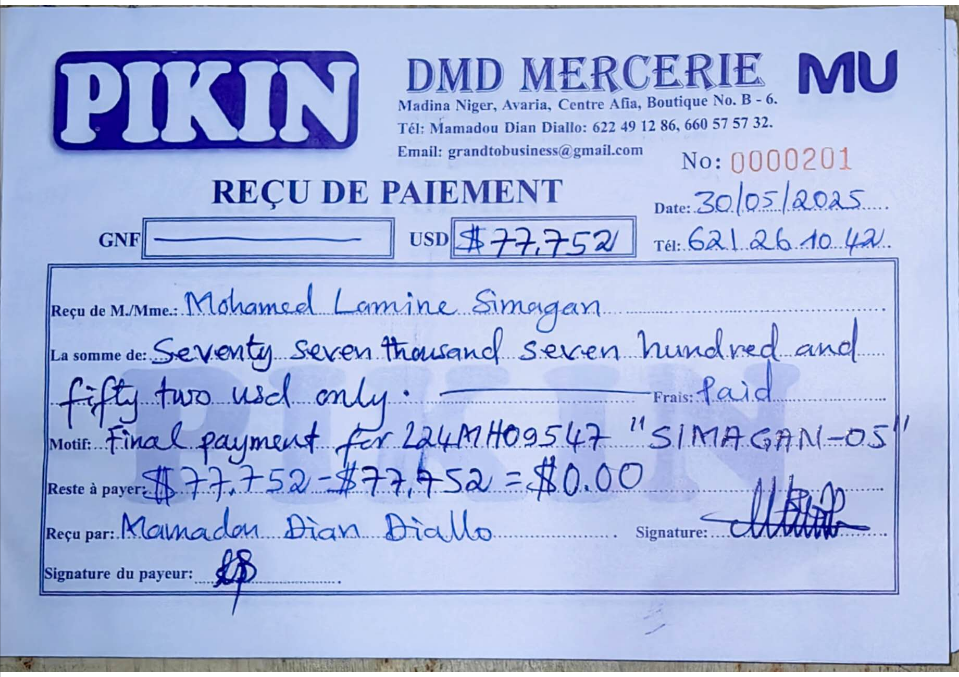 PIKIN
DMD MERCERIE MU
Madina Niger, Avaria, Centre Afia, Boutique No. B - 6.
Tél: Mamadou Dian Diallo: 622 49 12 86, 660 57 57 32.
Email: grandtobusiness@gmail.com
No: 0000201
REÇU DE PAIEMENT
Date: 30/05/2025
GNF USD $77,752 Tél: 621 26 10 42
Reçu de M./Mme.: Mohamed Lamine Simagan
La somme de: Seventy seven thousand seven hundred and
fifty two usd only. Frais: Paid
Motif: Final payment for 224MH09547 "SIMAGAN-05"
Reste à payer: $77,752-$77,752=$0.00
Reçu par: Mamadou Dian Diallo Signature:
Signature du payeur:
PIKIN